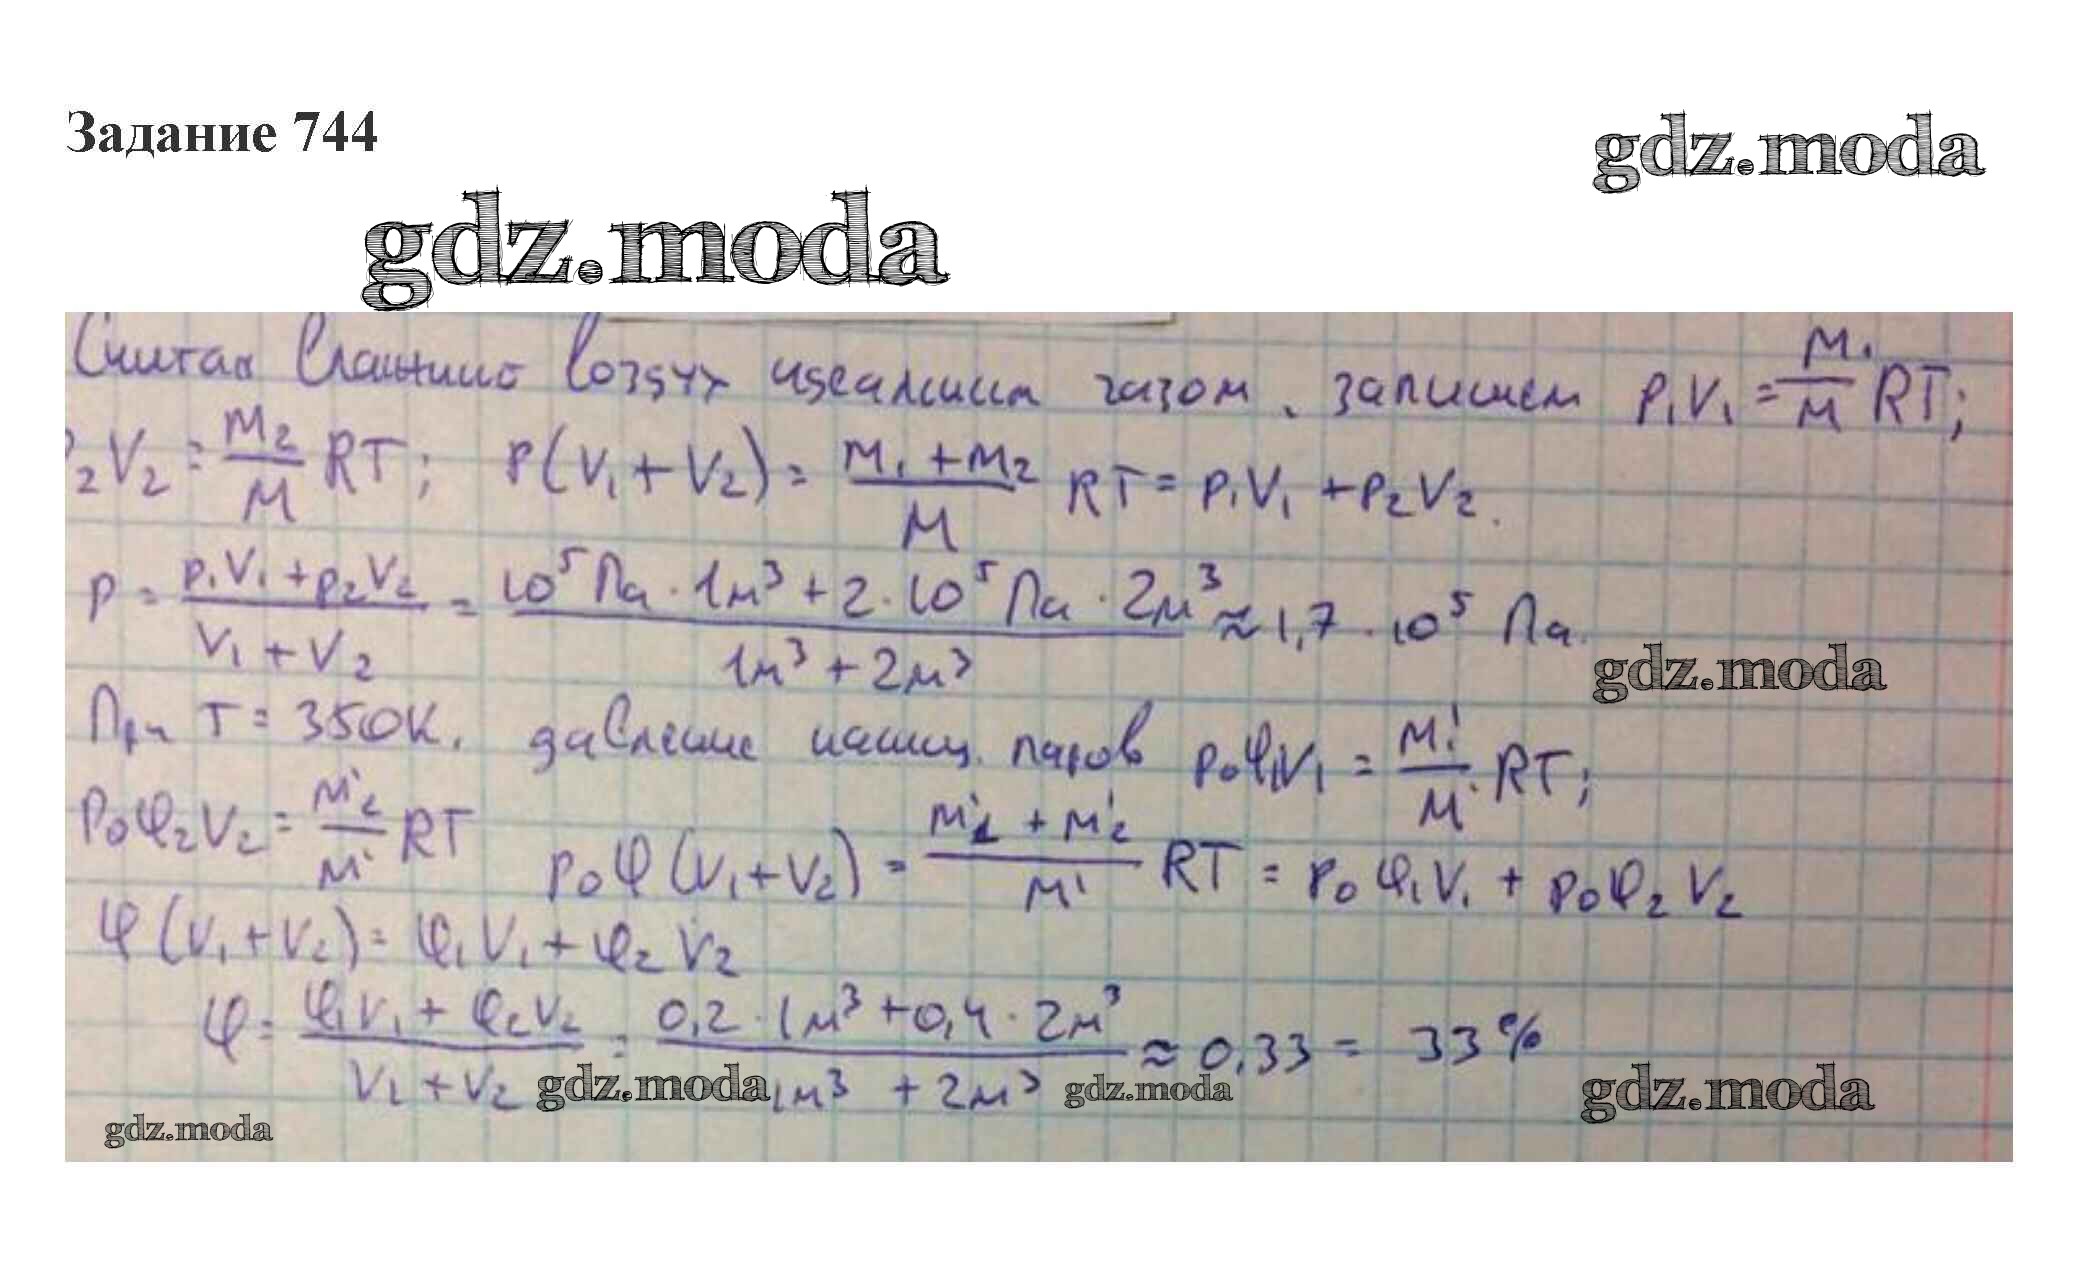 Задание 744
gdz.moda
gdz.moda
Считая влажный воздух идеальным газом, запишем p₁V₁ = m₁/M RT;
p₂V₂ = m₂/M RT; p(V₁ + V₂) = (m₁ + m₂)/M RT = p₁V₁ + p₂V₂.
p = (p₁V₁ + p₂V₂)/(V₁ + V₂) = (10⁵ Па · 1м³ + 2 · 10⁵ Па · 2м³)/(1м³ + 2м³) ≈ 1,7 · 10⁵ Па.
gdz.moda
При T = 350К, давление насыщ. паров p₀φ₁V₁ = m₁'/M' RT;
p₀φ₂V₂ = m'₂/M' RT p₀φ(V₁+V₂) = (m'₁ + m'₂)/M' RT = p₀φ₁V₁ + p₀φ₂V₂
φ(V₁+V₂) = φ₁V₁ + φ₂V₂
φ = (φ₁V₁ + φ₂V₂)/(V₁ + V₂) = (0,2 · 1м³ + 0,4 · 2м³)/(1м³ + 2м³) ≈ 0,33 = 33%
gdz.moda
gdz.moda
gdz.moda
gdz.moda